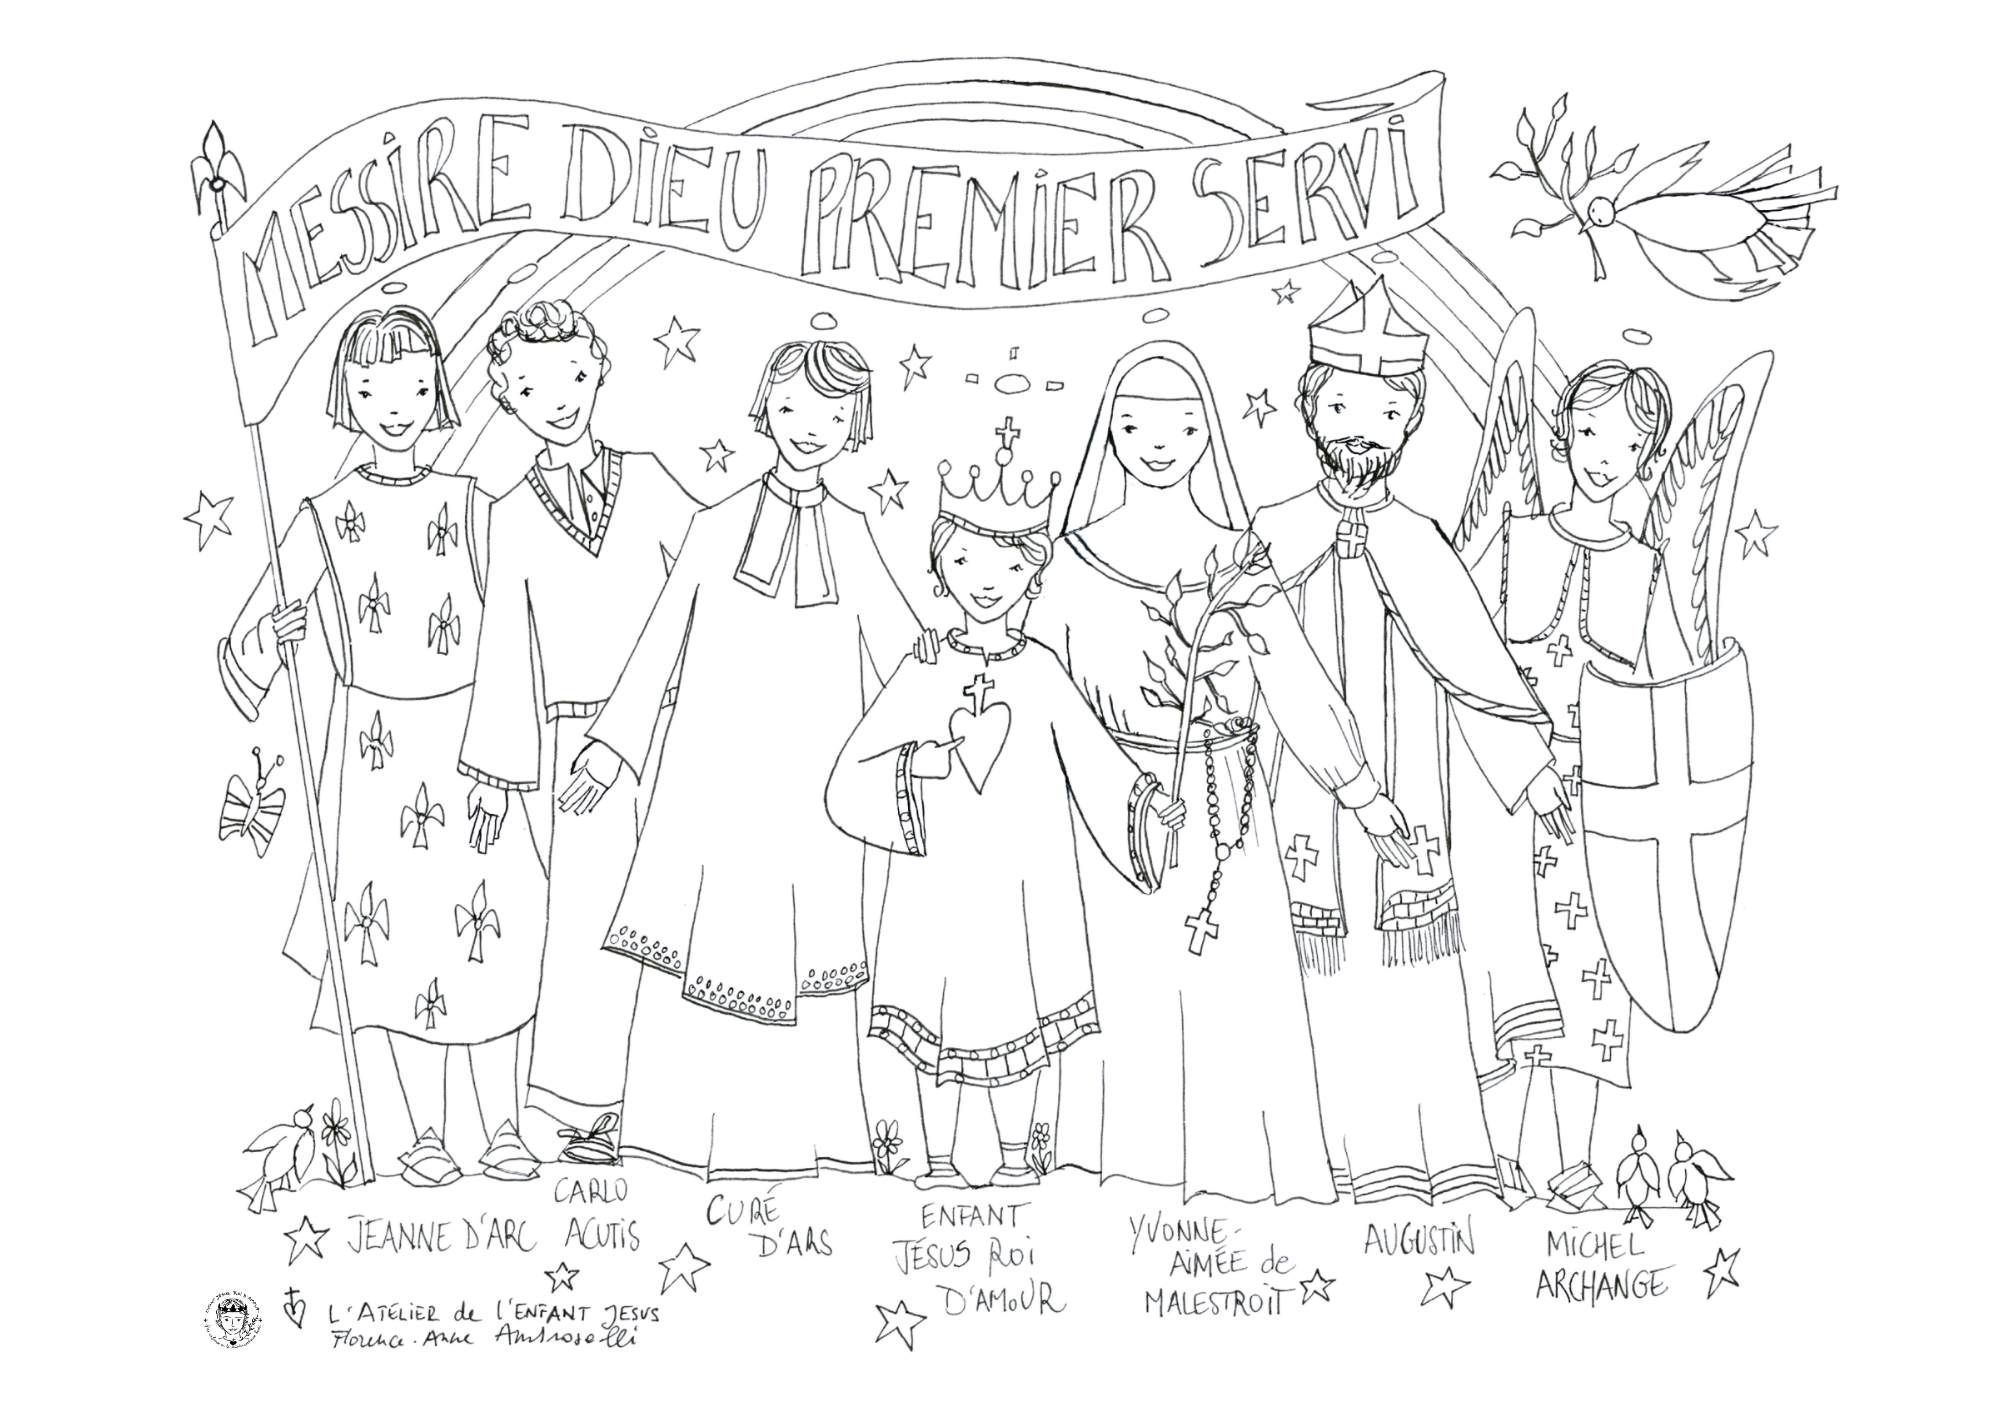 MESSIRE DIEU PREMIER SERVI
JEANNE D'ARC
CARLO
ACUTIS
CURÉ
D'ARS
ENFANT
JÉSUS ROI
D'AMOUR
YVONNE-
AIMÉE de
MALESTROIT
AUGUSTIN
MICHEL
ARCHANGE
L'ATELIER de L'ENFANT JESUS
Florence-Anne Ambroselli